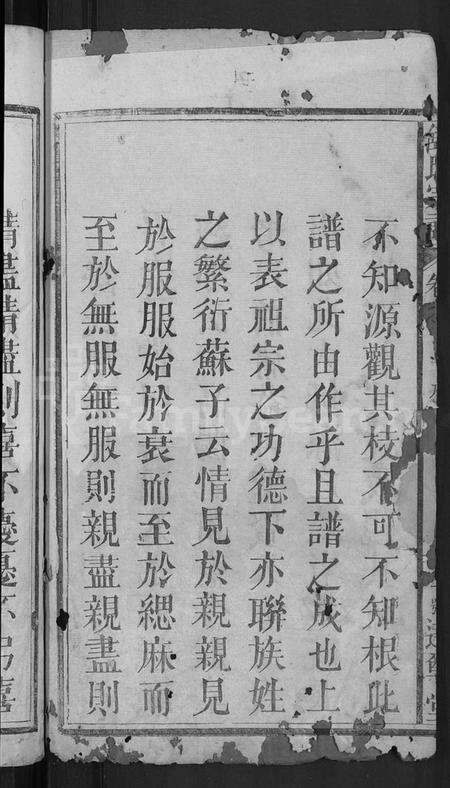 不知源觀其枝不可不知根此
譜之所由作乎且譜之成也上
以表祖宗之功德下亦聯族姓
之繁衍蘇子云情見於親親見
於服服始於衰而至於緦麻而
至於無服無服則親盡親盡則
情盡情盡則喜不憂憂不弔喜